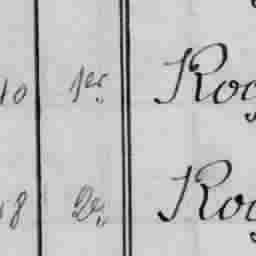 10 1er Rog
18 2e Rog